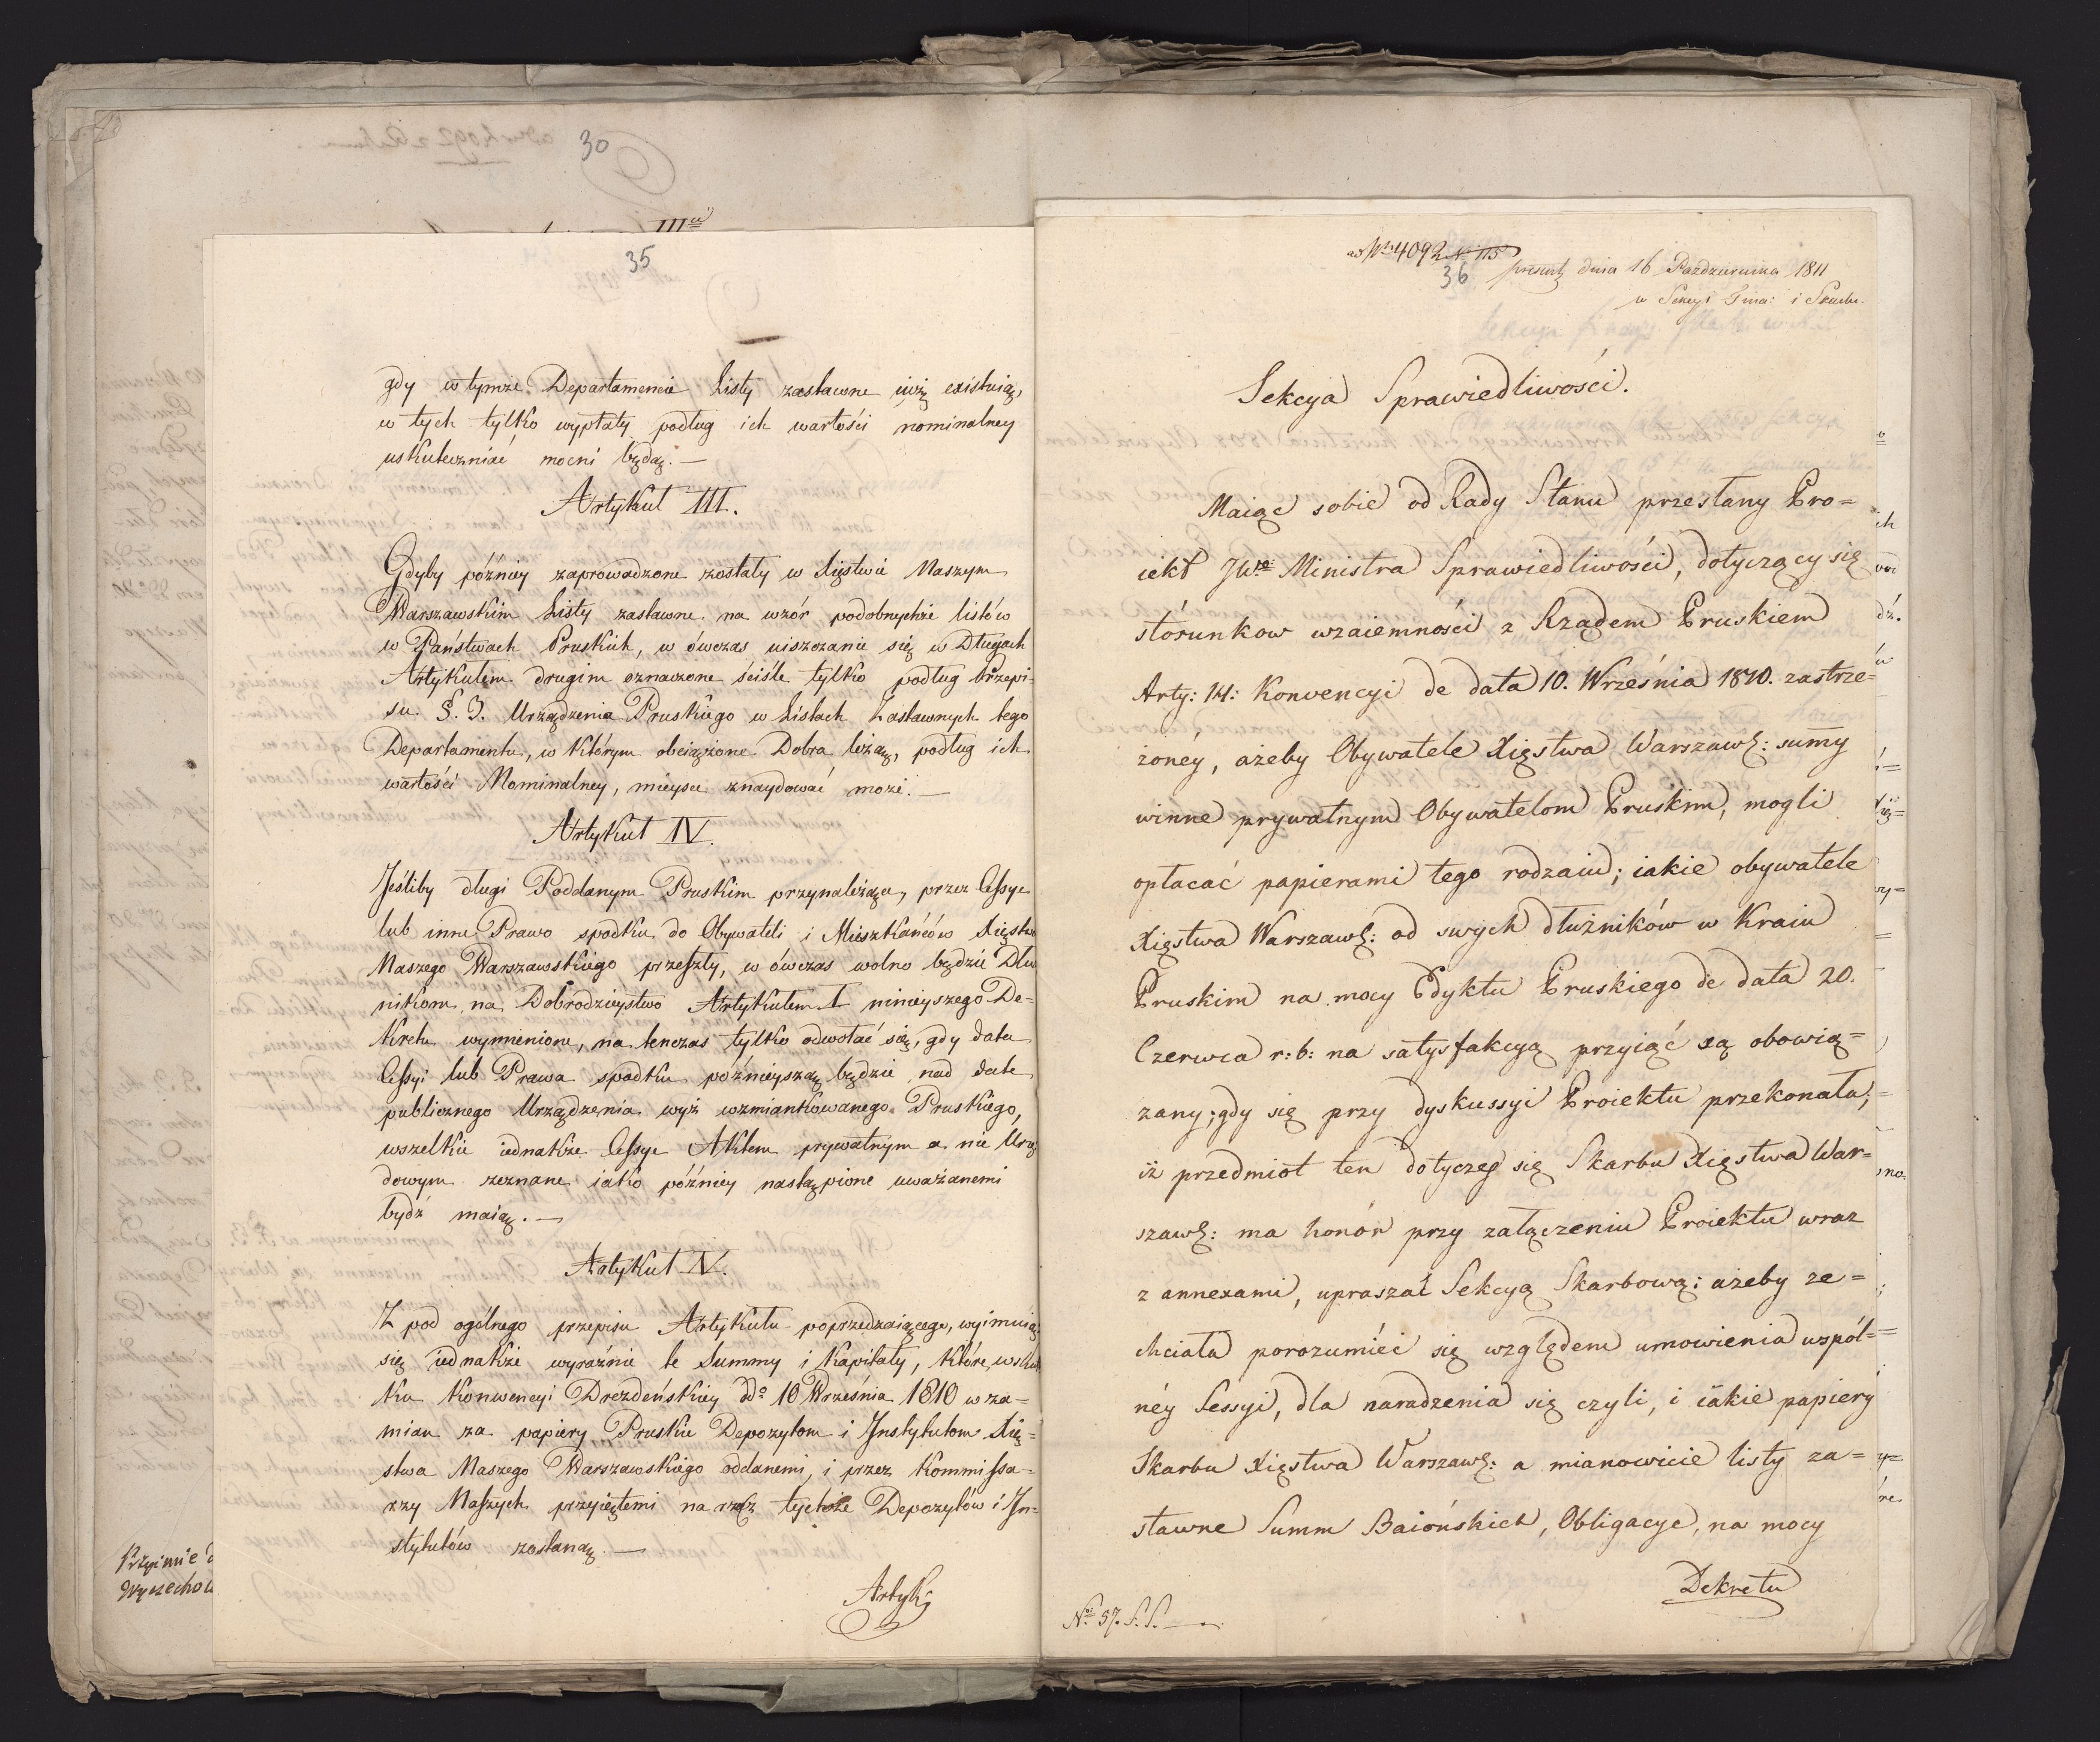 30
35
gdy w tymże Departamencie Listy zastawne iuż existuią,
w tych tylko wypłaty podług ich wartości nominalney
uskuteczniać mocni będą. —
Artykuł III.
Gdyby późniey zaprowadzone zostały w Xięstwie Naszym
Warszawskim Listy zastawne na wzór podobnychże listów
w Państwach Pruskich, w ówczas uiszczanie się w Długach
Artykułem drugim oznaczone ściśle tylko podług Przepi-
su §. 3. Urządzenia Pruskiego w Listach Zastawnych tego
Departamentu, w którym obciążone Dobra leżą, podług ich
wartości Nominalney, mieysce znaydować może. —
Artykuł IV.
Jeśliby długi Poddanym Pruskim przynależące, przez Cessye
lub inne Prawo spadku do Obywateli i Mieszkańców Xięstwa
Naszego Warszawskiego przeszły, w ówczas wolno będzie Dłu
nikom na Dobrodzieystwo Artykułem I ninieyszego De=
kretu wymienione, na tenczas tylko odwołać się, gdy data
Cessyi lub Prawa spadku poźnieyszą będzie nad datę
publicznego Urządzenia wyż wzmiankowanego Pruskiego,
wszelkie iednakże Cessye Aktem prywatnym a nie Urzę
dowym zeznane iako późniey nastąpione uważanemi
bydź maią. —
Artykuł V.
Z pod ogólnego przepisu Artykułu poprzedzaiącego, wyimuią
się iednakże wyraźnie te Summy i Kapitały, które wsku
tku Konwencyi Drezdeńskiey dd° 10 Września 1810 w za=
mian za papiery Pruskie Depozytom i Instytutom Xię=
stwa Naszego Warszawskiego oddanemi, i przez Kommissa=
rzy Naszych przyiętemi na rzecz tychże Depozytów i In=
stytutów zostaną. —
Artyk:
Przyimie
Wyczecho
ad Nr 4092 N 115
36
present dnia 16 Października 1811
w Sekcyi Tma: i Skarbu.
Sekcya Sprawiedliwości.
Maiąc sobie od Rady Stanu przesłany Pro=
iekt JWgo Ministra Sprawiedliwości, dotyczący się
stósunkow wzaiemności z Rządem Pruskiem
Arty: 14: Konwencyi de data 10. Września 1810. zastrze=
żoney, ażeby Obywatele Xięstwa Warszaws: summy
winne prywatnym Obywatelom Pruskim, mogli
opłacać papierami tego rodzaiu; iakie obywatele
Xięstwa Warszaws: od swych dłużników w Kraiu
Pruskim na mocy Edyktu Pruskiego de data 20.
Czerwca r: b: na satysfakcyą przyiąć są obowią=
zany; gdy się przy dyskussyi Proiektu przekonała,
iż przedmiot ten dotyczeć się Skarbu Xięstwa War=
szaws: ma honór przy załączeniu Proiektu wraz
z annexami, upraszać Sekcyą Skarbową: ażeby ze=
chciała porozumieć się względem umowienia wspól=
néy Sessyi, dla naradzenia się czyli, i iakie papiery
Skarbu Xięstwa Warszaws: a mianowicie listy za=
stawne Summ Baiońskich, Obligacye, na mocy
Dekretu
No. 57. S. S. —